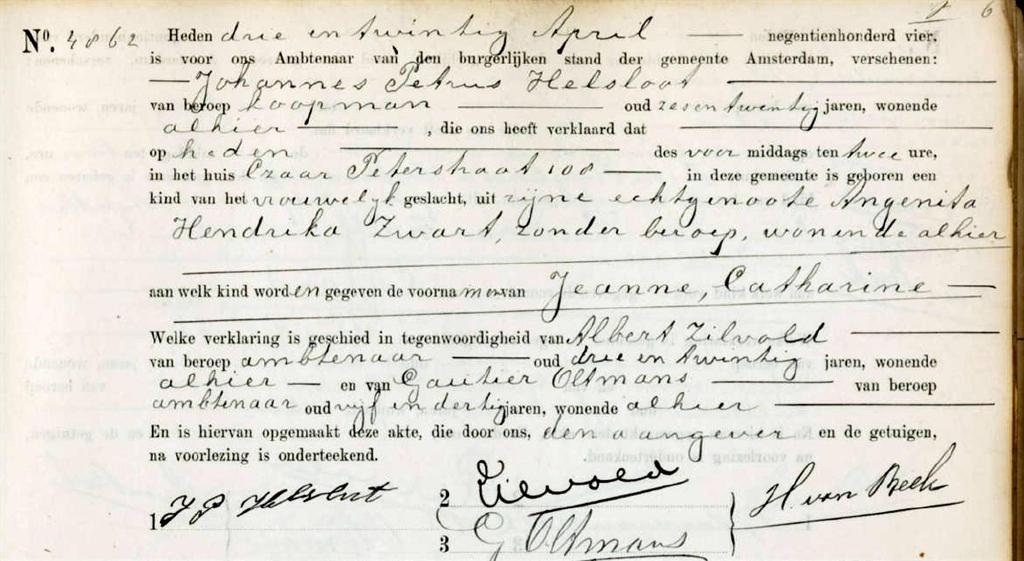 6
Nº. 4862 Heden drie en twintig April negentienhonderd vier,
is voor ons Ambtenaar van den burgerlijken stand der gemeente Amsterdam, verschenen:
Johannes Petrus Helsloot
van beroep koopman oud zesentwintig jaren, wonende
alhier , die ons heeft verklaard dat
op heden des voor middags ten twee ure,
in het huis Czaar Peterstraat 108 in deze gemeente is geboren een
kind van het vrouwelyk geslacht, uit zijne echtgenoote Angenita
Hendrika Zwart, zonder beroep, wonende alhier
aan welk kind worden gegeven de voornamen van Jeanne, Catharine
Welke verklaring is geschied in tegenwoordigheid van Albert Zilvold
van beroep ambtenaar oud drie en twintig jaren, wonende
alhier en van Gautier Oltmans van beroep
ambtenaar oud vijf en dertig jaren, wonende alhier
En is hiervan opgemaakt deze akte, die door ons, den aangever en de getuigen,
na voorlezing is onderteekend.
1 J P Helsloot 2 Zilvold H van Beek
3 G Oltmans